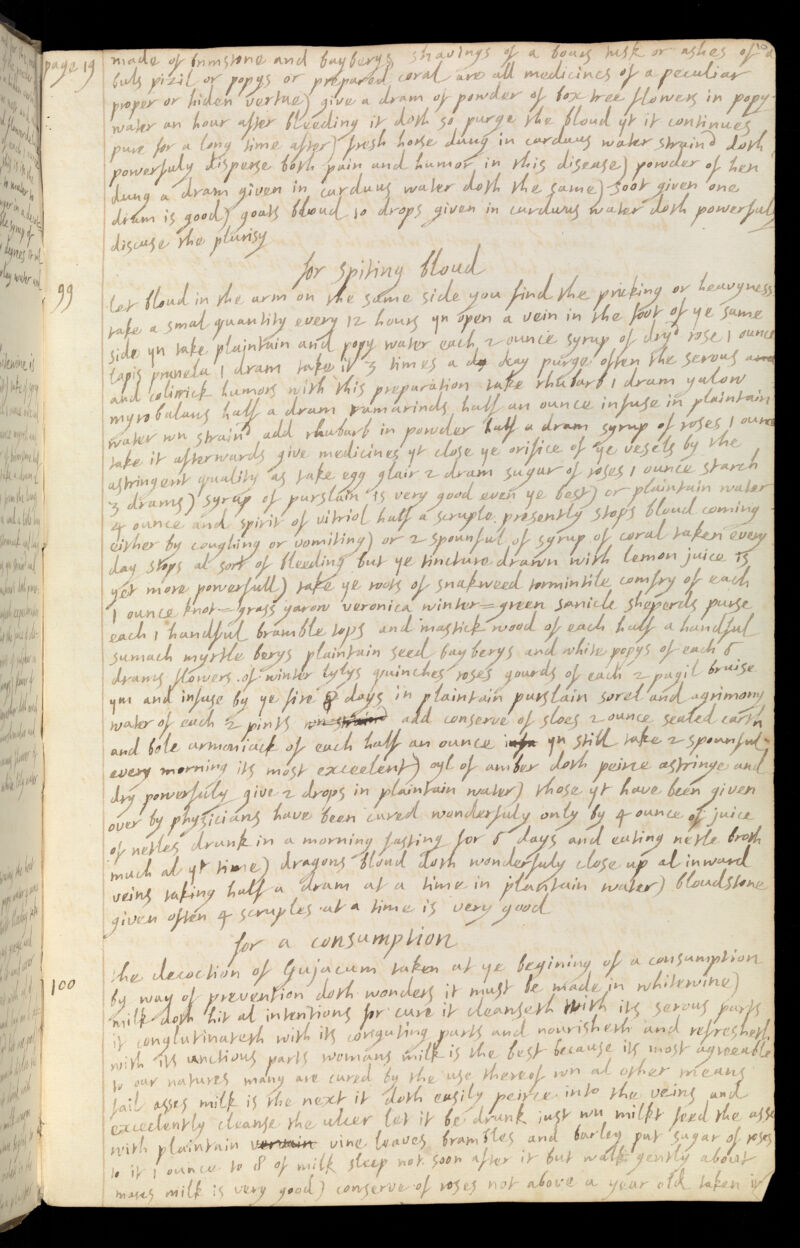 page 19
made of brimstone and bayberys shavings of a boars tusk or ashes of a
buls pizil or popys or prepared coral are all medicines of a peculiar
proper or hiden vertue) give a dram of powder of box tree flowers in popy
water an hour after bleeding it doth so purge the bloud yt it continues
pure for a long time after) fresh horse dung in carduus water straind doth
powerfuly disperse both pain and humor in this disease) powder of hen
dung a dram given in carduus water doth the same) soot given one
dram is good) goats bloud 10 drops given in carduus water doth powerfuly
discuse the plurisy
for spiting bloud
99
let bloud in the arm on the same side you find the pricking or heavyness
take a smal quantity every 12 hours yn open a vein in the foot of ye same
side yn take plaintain and popy water each 2 ounce syrup of dryd rose 1 ounce
lapis prunela 1 dram take it 3 times a day purge often the serous
and colirick humors with this preparation take rhubarb 1 dram yalow
myrobalans half a dram tamarinds half an ounce infuse in plaintain
water wn straind add rhubarb in powder half a dram syrup of roses 1 ounce
take it afterwards give medicines yt close ye orifice of ye vesels by the
astringent quality as take egg glair 2 dram sugar of roses 1 ounce starch
3 drams) syrup of purslain is very good even ye best) or plaintain water
4 ounce and spirit of vitriol half a scruple presently stops bloud coming
either by coughing or vomiting) or 2 spounful of syrup of coral taken every
day stops al sort of bleeding but ye tincture drawn with lemon juice is
yet more powerfull) take ye roots of snakweed tormintile comfry of each
1 ounce knot=grass yarow veronica winter=green sanicle sheperds purse
each 1 handful bramble tops and mastick wood of each half a handful
sumach myrtle berys plaintain seed bayberys and white popys of each 6
drams flowers of winter lylys quinches roses gourds of each 2 pugil bruise
ym and infuse by ye fire 8 days in plaintain purslain sorel and agrimony
water of each 2 pints wn straind add conserve of sloes 2 ounce sealed earth
and bole armoniack of each half an ounce yn still take 2 spounful
every morning its most exceelent) oyl of amber doth peirce astringe and
dry powerfuly give 2 drops in plaintain water) those yt have been given
over by physicians have been cured wonderfuly only by 4 ounce of juice
of netles drunk in a morning fasting for 6 days and eating netle broth
much al yt time) dragons bloud doth wonderfuly close up al inward
veins taking half a dram at a time in plantain water) bloudstone
given often 4 scruples at a time is very good
for a consumption
100
the decoction of Gujacum taken at ye begining of a consumption
by way of prevention doth wonders it must be made in whitewine)
milk doth hit al intentions for cure it cleanseth with its serous parts
it conglutinateth with its coaguting parts and nourisheth and refresheth
with its unctious parts womans milk is the best because its most agreeable
to our natures many are cured by the use thereof wn al other means
fail asses milk is the next it doth easily peirce into the veins and
exceelently cleanse the ulcer let it be drunk just wn milkt feed the asse
with plaintain vervain vine leaves brambles and barley put sugar of roses
to it 1 ounce to 8 of milk sleep not soon after it but walk gently about
mares milk is very good) conserve of roses not above a year old taken in